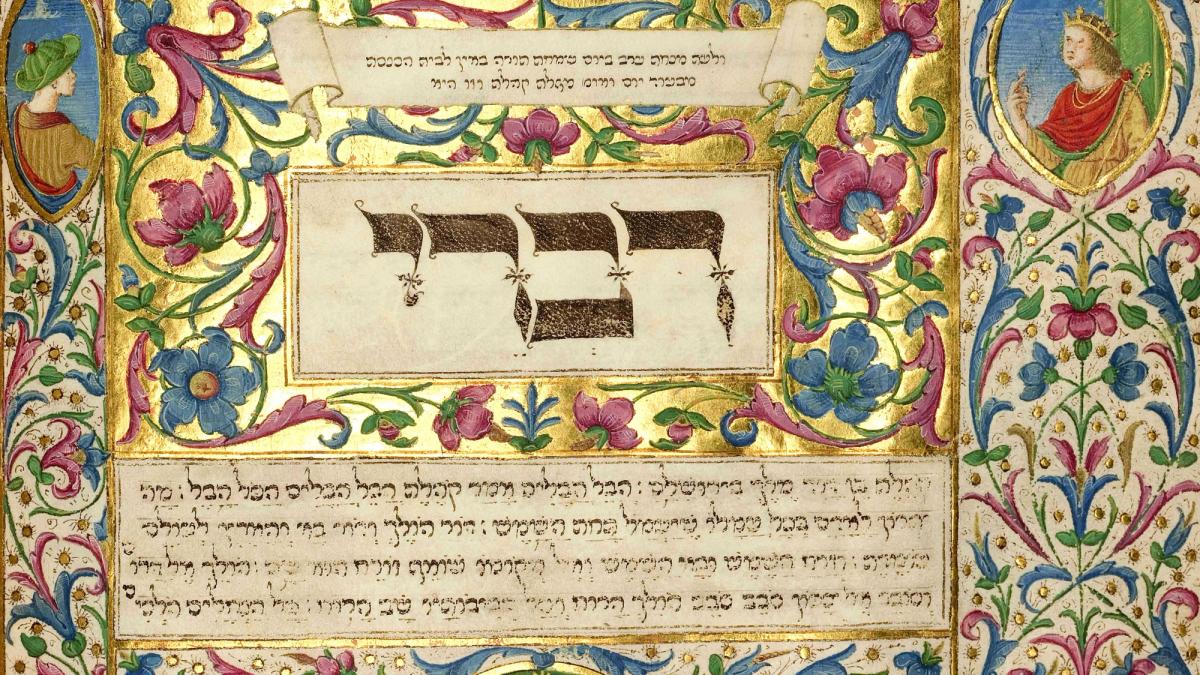 ולעת מנחת ערב ביום שמחת תורה באין לבית הכנסת
מבעוד יום ואומ' מגלת קהלת וזו היא
דברי
קהלת בן דוד מלך בירושלם : הבל הבלים אמר קהלת הבל הבלים הכל הבל : מה
יתרון לאדם בכל עמלו שיעמל תחת השמש : דור הולך ודור בא והארץ לעולם
עומדת : וזרח השמש ובא השמש ואל מקומו שואף זורח הוא שם : הולך אל דרום
וסובב אל צפון סבב סבב הולך הרוח ועל סביבותיו שב הרוח : כל הנחלים הלכי